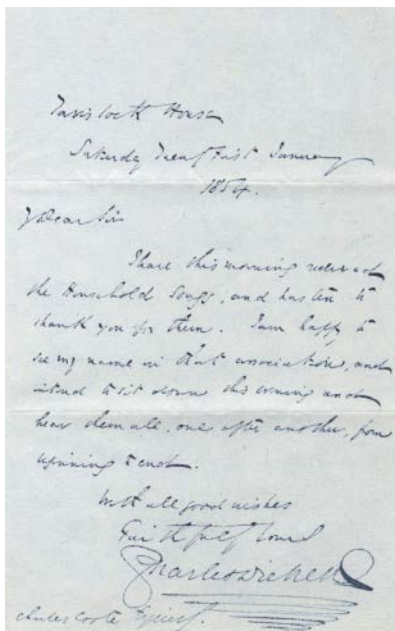 Tavistock House
Saturday Twenty First January
1854.
My Dear Sir
I have this morning received
the Household Songs, and hasten to
thank you for them. I am happy to
see my name in that association, and
intend to sit down this evening and
hear them all, one after another, from
beginning to end.
With all good wishes
Faithfully Yours
Charles Dickens
Charles Coote Esquire.